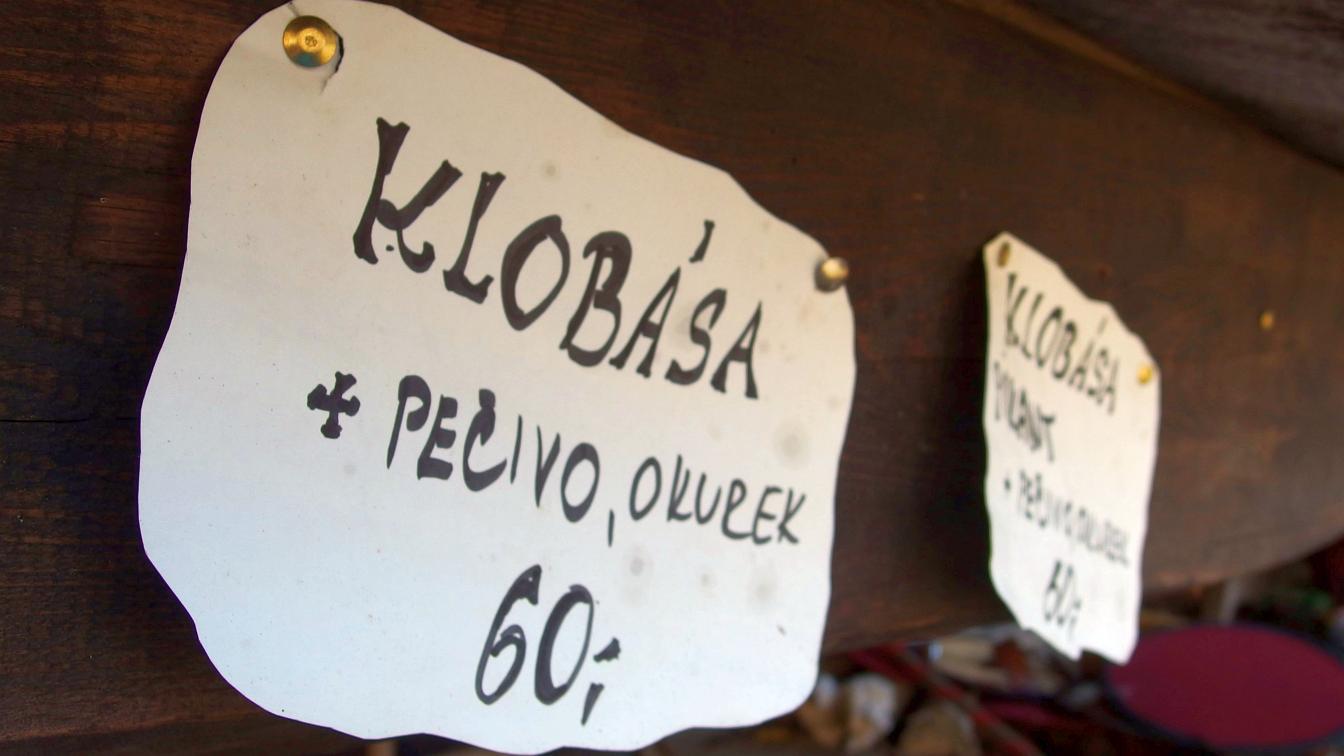 KLOBÁSA
+ PEČIVO, OKUREK
60,-
KLOBÁSA
+ PEČIVO, OKUREK
60,-